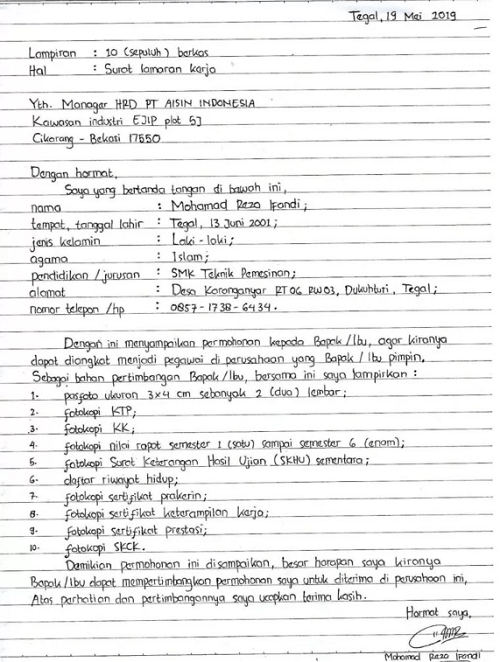 Tegal, 19 Mei 2019
Lampiran : 10 (sepuluh) berkas
Hal : Surat lamaran kerja
Yth. Manager HRD PT AISIN INDONESIA
Kawasan industri EJIP plot 5J
Cikarang - Bekasi 17550
Dengan hormat,
Saya yang bertanda tangan di bawah ini,
nama : Mohamad Reza Irfandi;
tempat, tanggal lahir : Tegal, 13 Juni 2001;
jenis kelamin : Laki-laki;
agama : Islam;
pendidikan / jurusan : SMK Teknik Pemesinan;
alamat : Desa Karanganyar RT 06 RW 03, Dukuhturi, Tegal;
nomor telepon / hp : 0857-1738-6434.
Dengan ini menyampaikan permohonan kepada Bapak / Ibu, agar kiranya
dapat diangkat menjadi pegawai di perusahaan yang Bapak / Ibu pimpin,
Sebagai bahan pertimbangan Bapak / Ibu, bersama ini saya lampirkan :
1. pasfoto ukuran 3x4 cm sebanyak 2 (dua) lembar;
2. fotokopi KTP;
3. fotokopi KK;
4. fotokopi nilai rapot semester 1 (satu) sampai semester 6 (enam);
5. fotokopi Surat Keterangan Hasil Ujian (SKHU) sementara;
6. daftar riwayat hidup;
7. fotokopi sertifikat prakerin;
8. fotokopi sertifikat keterampilan kerja;
9. fotokopi sertifikat prestasi;
10. fotokopi SKCK.
Demikian permohonan ini disampaikan, besar harapan saya kiranya
Bapak / Ibu dapat mempertimbangkan permohonan saya untuk diterima di perusahaan ini,
Atas perhatian dan pertimbangannya saya ucapkan terima kasih.
Hormat saya,
Mohamad Reza Irfandi